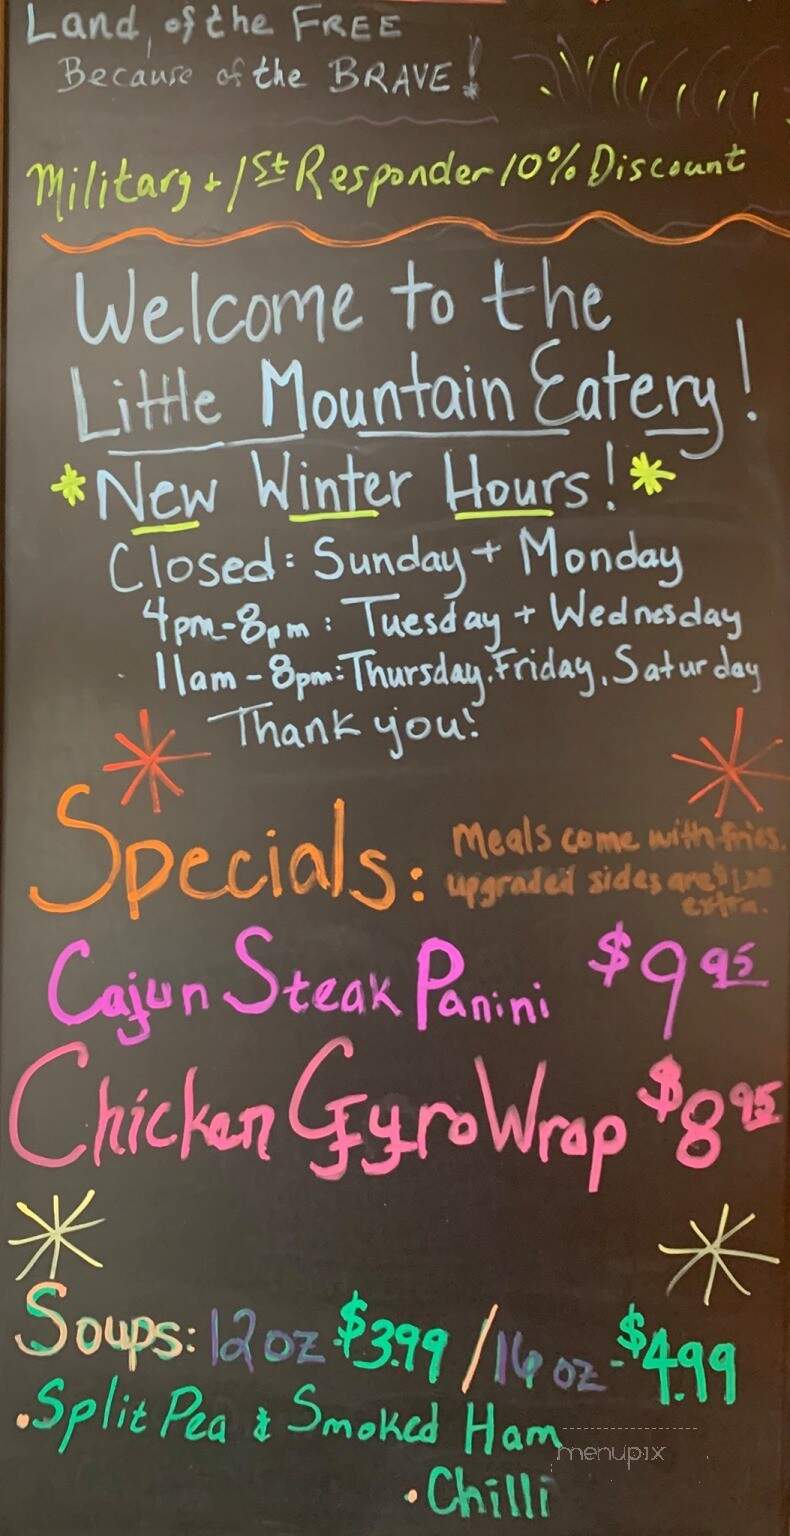 Land of the FREE
Because of the BRAVE!
Military + 1st Responder 10% Discount
Welcome to the
Little Mountain Eatery!
*New Winter Hours!*
Closed: Sunday + Monday
4pm-8pm: Tuesday + Wednesday
11am-8pm: Thursday, Friday, Saturday
Thank you!
Specials:
Meals come with fries.
upgraded sides are
extra.
Cajun Steak Panini $9.95
Chicken Gyro Wrap $8.95
Soups: 12 oz $3.99 / 16 oz - $4.99
• Split Pea & Smoked Ham
menupix
• Chilli